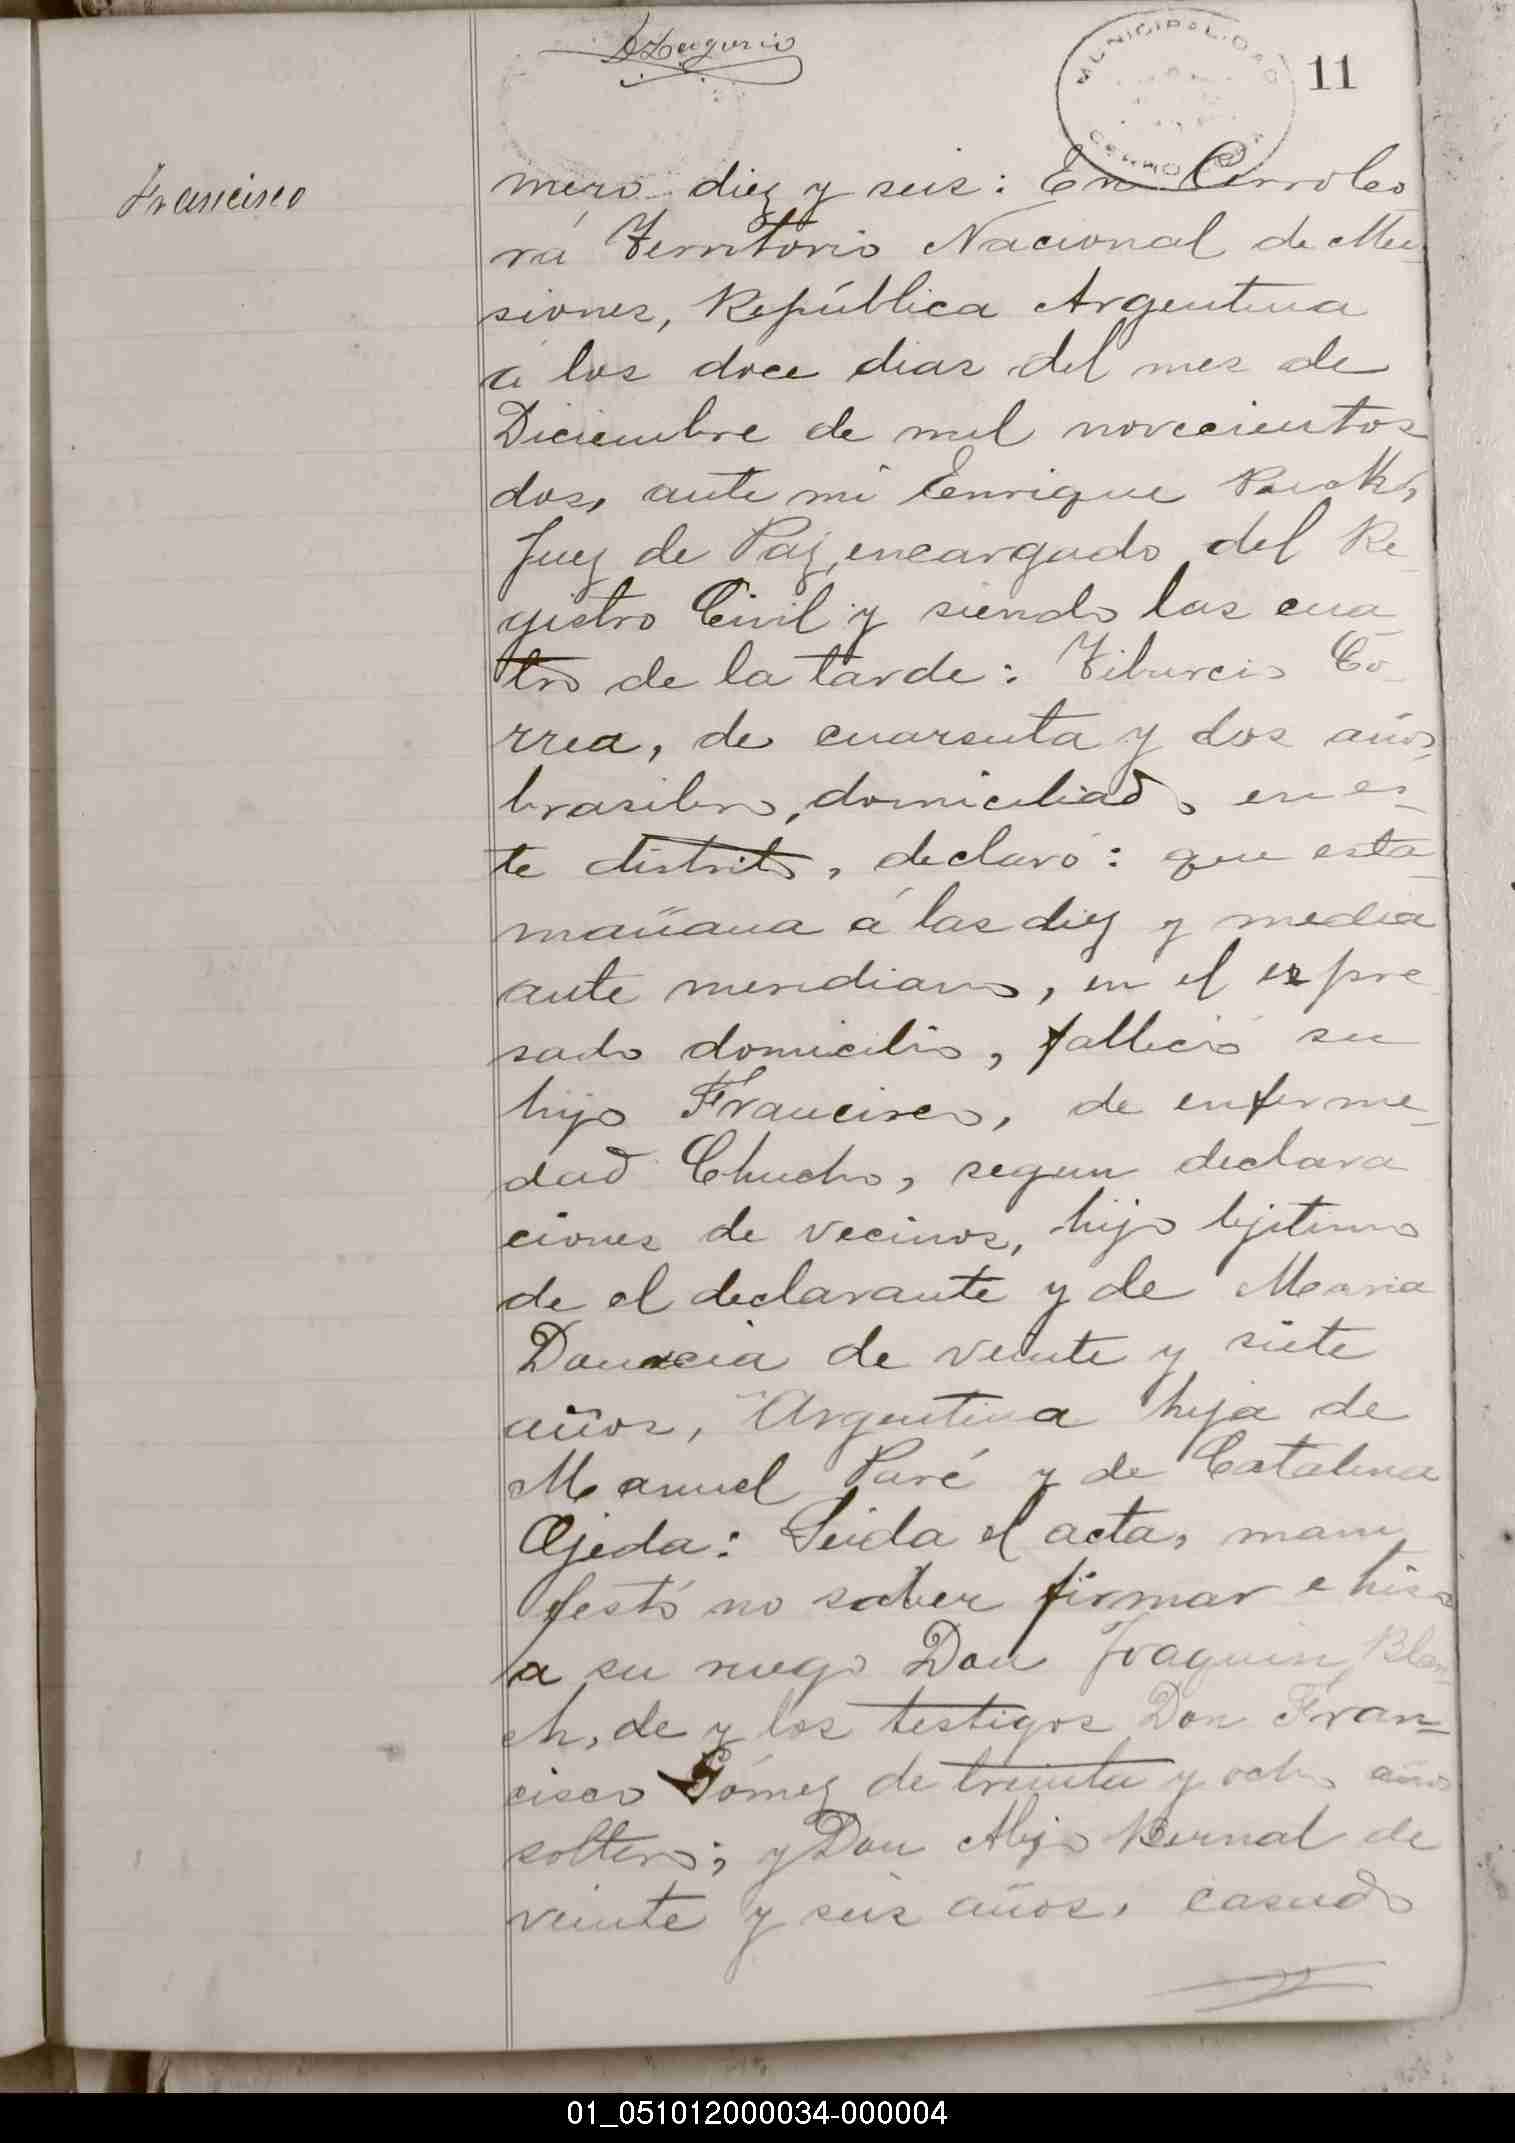 11
MUNICIPALIDAD
CERRO CORÁ
Francisco
mero diez y seis: En Cerro Co
rá Territorio Nacional de Mi-
siones, República Argentina
á los doce dias del mes de
Diciembre de mil novecientos
dos, ante mi Enrique
Juez de Paz, encargado del Re-
gistro Civil y siendo las cua
tro de la tarde: Tiburcio Co-
rrea, de cuarenta y dos años
brasilero, domiciliado en es-
te distrito, declaró: que esta
mañana á las diez y media
ante meridiano, en el expre
sado domicilio, falleció su
hijo Francisco, de enferme-
dad Chucho, segun declara
ciones de vecinos, hijo lejitimo
de el declarante y de Maria
de veinte y siete
años, Argentina hija de
Manuel Paré y de Catalina
Ojeda: Leida el acta, mani
festó no saber firmar e hiso
a su ruego Don Joaquin Blan
ch, de y los testigos Don Fran-
cisco Gómez de treinta y ocho años
soltero; y Don Alejo Bernal de
veinte y seis años, casado
01_051012000034-000004